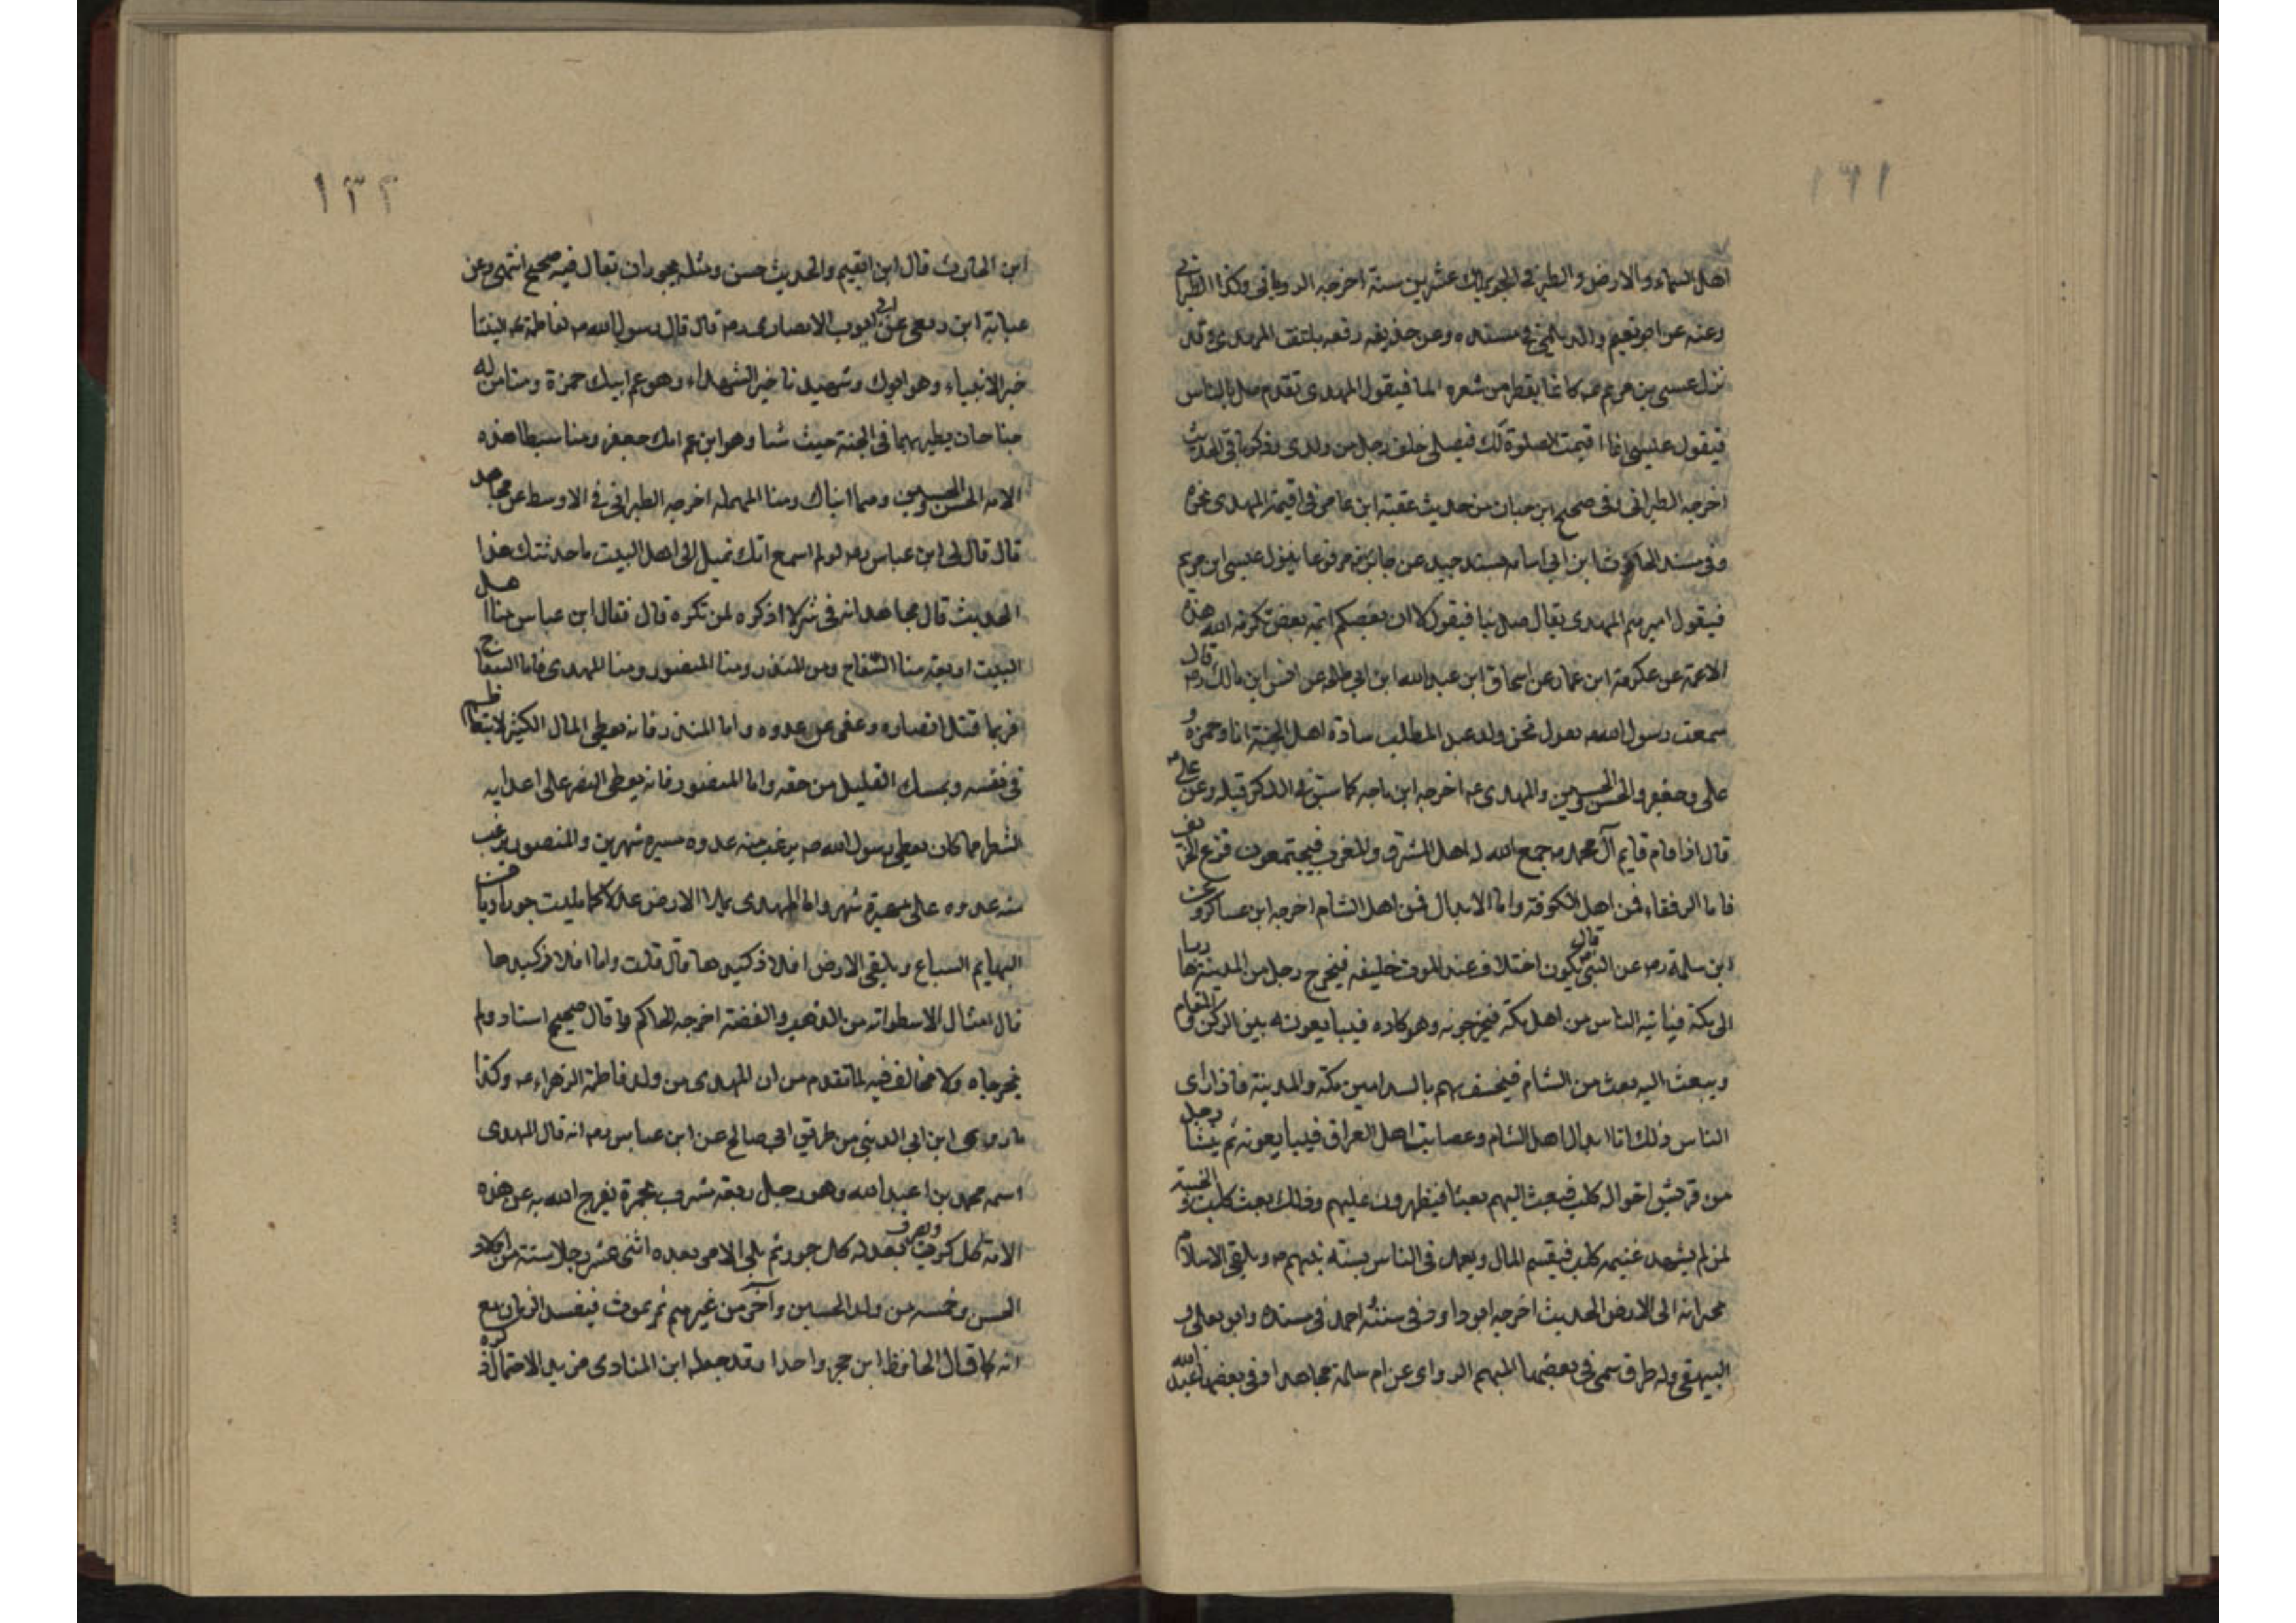 ١٣١
اهل السماء والارض والطير في الجو يملك عشرين سنة اخرجه الروياني وكذا الطبراني
وعنه عن ابو نعيم والديلمي في مسنده وعن حذيفه رفعه يلتفت المهدى وقد
نزل عيسى بن مريم عم كانما يقطر من شعره الما فيقول المهدى تقدم صل بالناس
فيقول عليسى انما اقيمت الصلوة لك فيصلى خلف رجل من ولدى وذكر باقى الحديث
اخرجه الطبرانى وفى صحيح ابن حبان من حديث عقبة ابن عامر في اقيمة المهدى نحوه
وفى مسند الحارث ابن ابي اسامه بسند جيد عن جابر مرفوعا ينزل عيسى ابن مريم
فيقول اميرهم المهدى تعال صل بنا فيقول لا ان بعضكم ائمة بعض تكرمه الله هذه
الامة عن عكرمة ابن عمار عن اسحاق ابن عبد الله ابن ابي طلحه عن انس ابن مالك رم قال
سمعت رسول الله صه يقول نحن ولد عبد المطلب سادة اهل الجنة انا وحمزه و
على وجعفر والحسن والحسين والمهدى عم اخرجه ابن ماجه كما سبق في الذكر قبله وعن على
قال اذا قام قايم آل محمد صه جمع الله له اهل المشرق والمغرب فيجتمعون قزع الخريف
فاما الرفقاء فمن اهل الكوفة واما الابدال فمن اهل الشام اخرجه ابن عساكر وعن
ابن سلمة رم عن النبى قال يكون اختلاف عند الموت خليفه فيخرج رجل من المدينة هاربا
الى مكة فياتيه الناس من اهل مكة فيخرجونه وهو كاره فيبايعونه بين الركن والمقام
ويبعث اليه بعث من الشام فيخسف بهم بالبيدا بين مكه والمدينة فاذا راى
الناس ذلك اتاه ابدال اهل الشام وعصايب اهل العراق فيبايعونه ثم ينشا رجل
من قريش اخواله كلب فيبعث اليهم بعثا فيظهرون عليهم وذلك بعث كلب والخيبة
لمن لم يشهد غنيمه كلب فيقسم المال ويعمل فى الناس بسنة نبيهم صه ويلقى الاسلام
بجرانه الى الارض الحديث اخرجه ابو داود فى سننه احمد فى مسنده وابو يعلى و
البيهقى وله طرق سمى فى بعضها المبهم الرواى عن ام سلمة مجاهدا وفى بعضها عبد الله
١٣٢
ابن الحارث قال ابن القيم والحديث حسن ومثله يجوز ان يقال فيه صحيح انتهى وعن
عباية ابن ربعى عن ابي ايوب الانصارى رم قال قال رسول الله صه لفاطمة عم نبينا
خير الانبياء وهو ابوك وشهيدنا خير الشهداء وهو عم ابيك حمزة ومنا من له
جناحان يطير بهما فى الجنة حيث شا وهو ابن عم ابيك جعفر ومنا سبطا هذه
الامه الحسن والحسين وهما ابناك ومنا المهدى اخرجه الطبرانى في الاوسط عن مجاهد
قال قال لى ابن عباس رم لو لم اسمع انك تميل الى اهل البيت ما حدثتك هذا
الحديث قال مجاهد انه فى شر لا اذكره لمن تكره قال فقال ابن عباس منا اهل
البيت اربعة منا السفاح ومن المنذر ومنا المنصور ومنا المهدى فاما السفاح
فربما قتل انصاره وعفى عن عدوه واما المنذر فانه يعطى المال الكثير لا يتعاظم
فى نفسه ويمسك القليل من حقه واما المنصور فانه يعطى النصر على اعدايه
الشطر مما كان يعطى رسول الله صه يرغب منه عدوه مسيره شهرين والمنصور يرغب
منه عدوه على مسيرة شهر واما المهدى يملا الارض عدلا كما مليت جورا ويامن
البهايم السباع ويلقى الارض افلاذ كبدها قال قلت واما افلاذ كبدها
قال امثال الاسطوانه من الذهب والفضة اخرجه الحاكم وقال صحيح اسناد ولم
يخرجاه ولا مخالف فيه لما تقدم من ان المهدى من ولد فاطمة الزهراء عم وكذا
ما روى ابن ابي الدنيى من طريق ابى صالح عن ابن عباس رم انه قال المهدى
اسمه محمد بن عبد الله وهو رجل ربعه مشرب بحمرة يفرج الله به عن هذه
الامة كل كرب ويصرف بعدله كل جور ثم يلى الامر بعده اثنى عشر رجلا ستة من اولاد
الحسن وخمسه من ولد الحسين وآخر من غيرهم ثم يموت فيفسد الزمان مع
انه كما قال الحافظ ابن حجر واحدا وقد جعله ابن المنادى مزيد الاحتمال ذكره